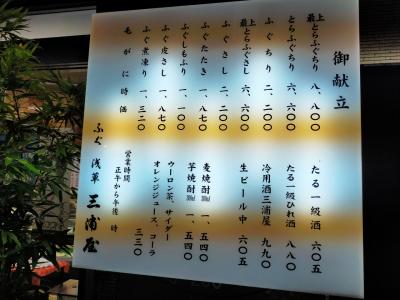 御献立
最上とらふぐちり 八、八〇〇
とらふぐちり 六、六〇〇
ふぐちり 二、二〇〇
最上とらふぐさし 六、六〇〇
ふぐさし 二、二〇〇
ふぐたたき 一、八七〇
ふぐしもふり 一、一〇〇
ふぐ皮さし 一、八七〇
ふぐ煮凍り 一、三二〇
毛がに 時価
たる一級酒 六〇五
たる一級ひれ酒 八八〇
冷用酒三浦屋 九九〇
生ビール中 六〇五
麦焼酎 一、五四〇
芋焼酎 一、五四〇
ウーロン茶、サイダー
オレンジジュース、コーラ 三三〇
営業時間
正午から午後 時
ふぐ 浅草 三浦屋